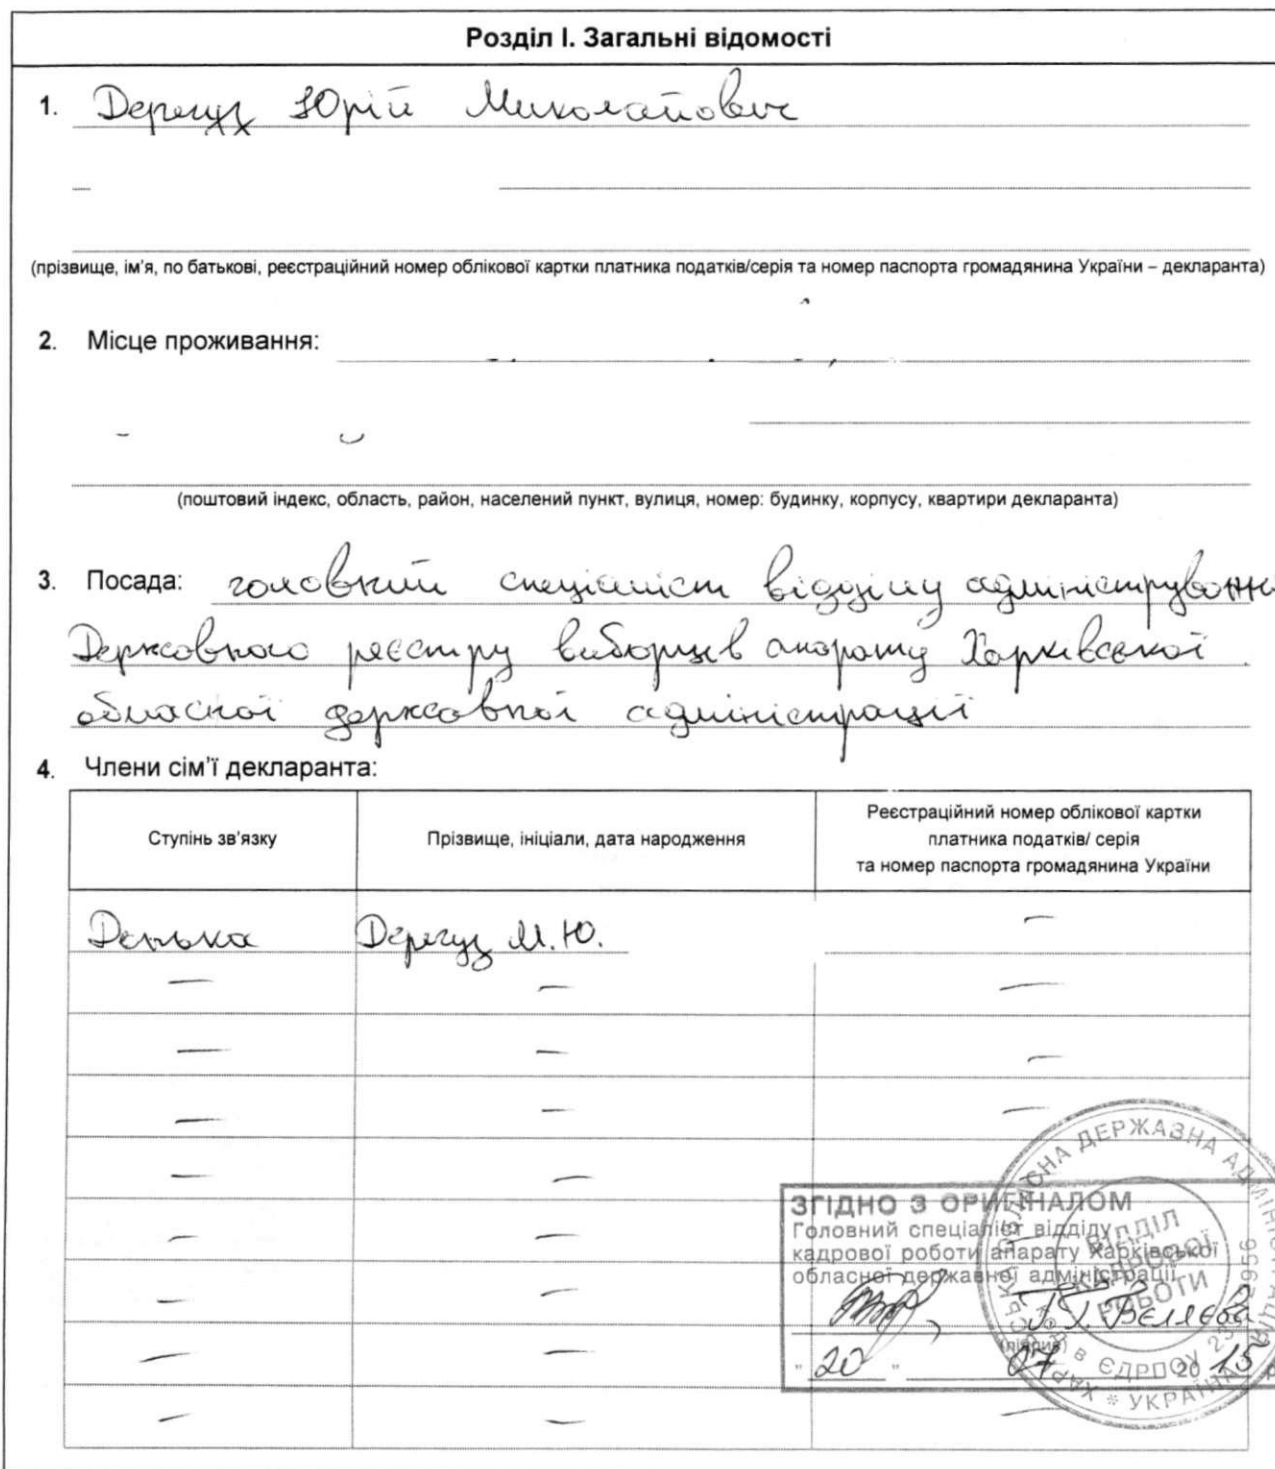 Розділ І. Загальні відомості
1. Дерегуз Юрій Миколайович
(прізвище, ім'я, по батькові, реєстраційний номер облікової картки платника податків/серія та номер паспорта громадянина України – декларанта)
2. Місце проживання:
(поштовий індекс, область, район, населений пункт, вулиця, номер: будинку, корпусу, квартири декларанта)
3. Посада: головний спеціаліст відділу адміністрування
Державного реєстру виборців апарату Харківської
обласної державної адміністрації
4. Члени сім'ї декларанта:
Ступінь зв'язку
Прізвище, ініціали, дата народження
Реєстраційний номер облікової картки
платника податків/ серія
та номер паспорта громадянина України
Донька Дерегуз М.Ю. —
— — —
— — —
— — —
— —
— —
— —
— —
— — —
ЗГІДНО З ОРИГІНАЛОМ
Головний спеціаліст відділу
кадрової роботи апарату Харківської
обласної державної адміністрації
Бєляєва
(підпис)
"20" 07 2015
ВІДДІЛ
КАДРОВОЇ
РОБОТИ